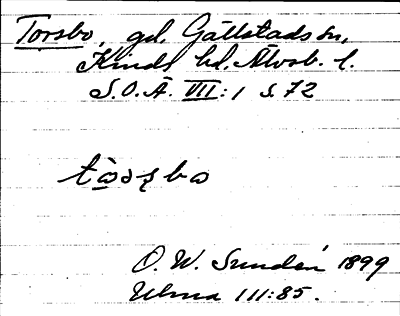 Torsbo, gd. Gällstads sn,
Kinds hd. Älvsb. l.
S.O.Ä. VII:1 s. 72
tòo̩ʂbo
O. W. Sundén 1899
Ulma 111:85.